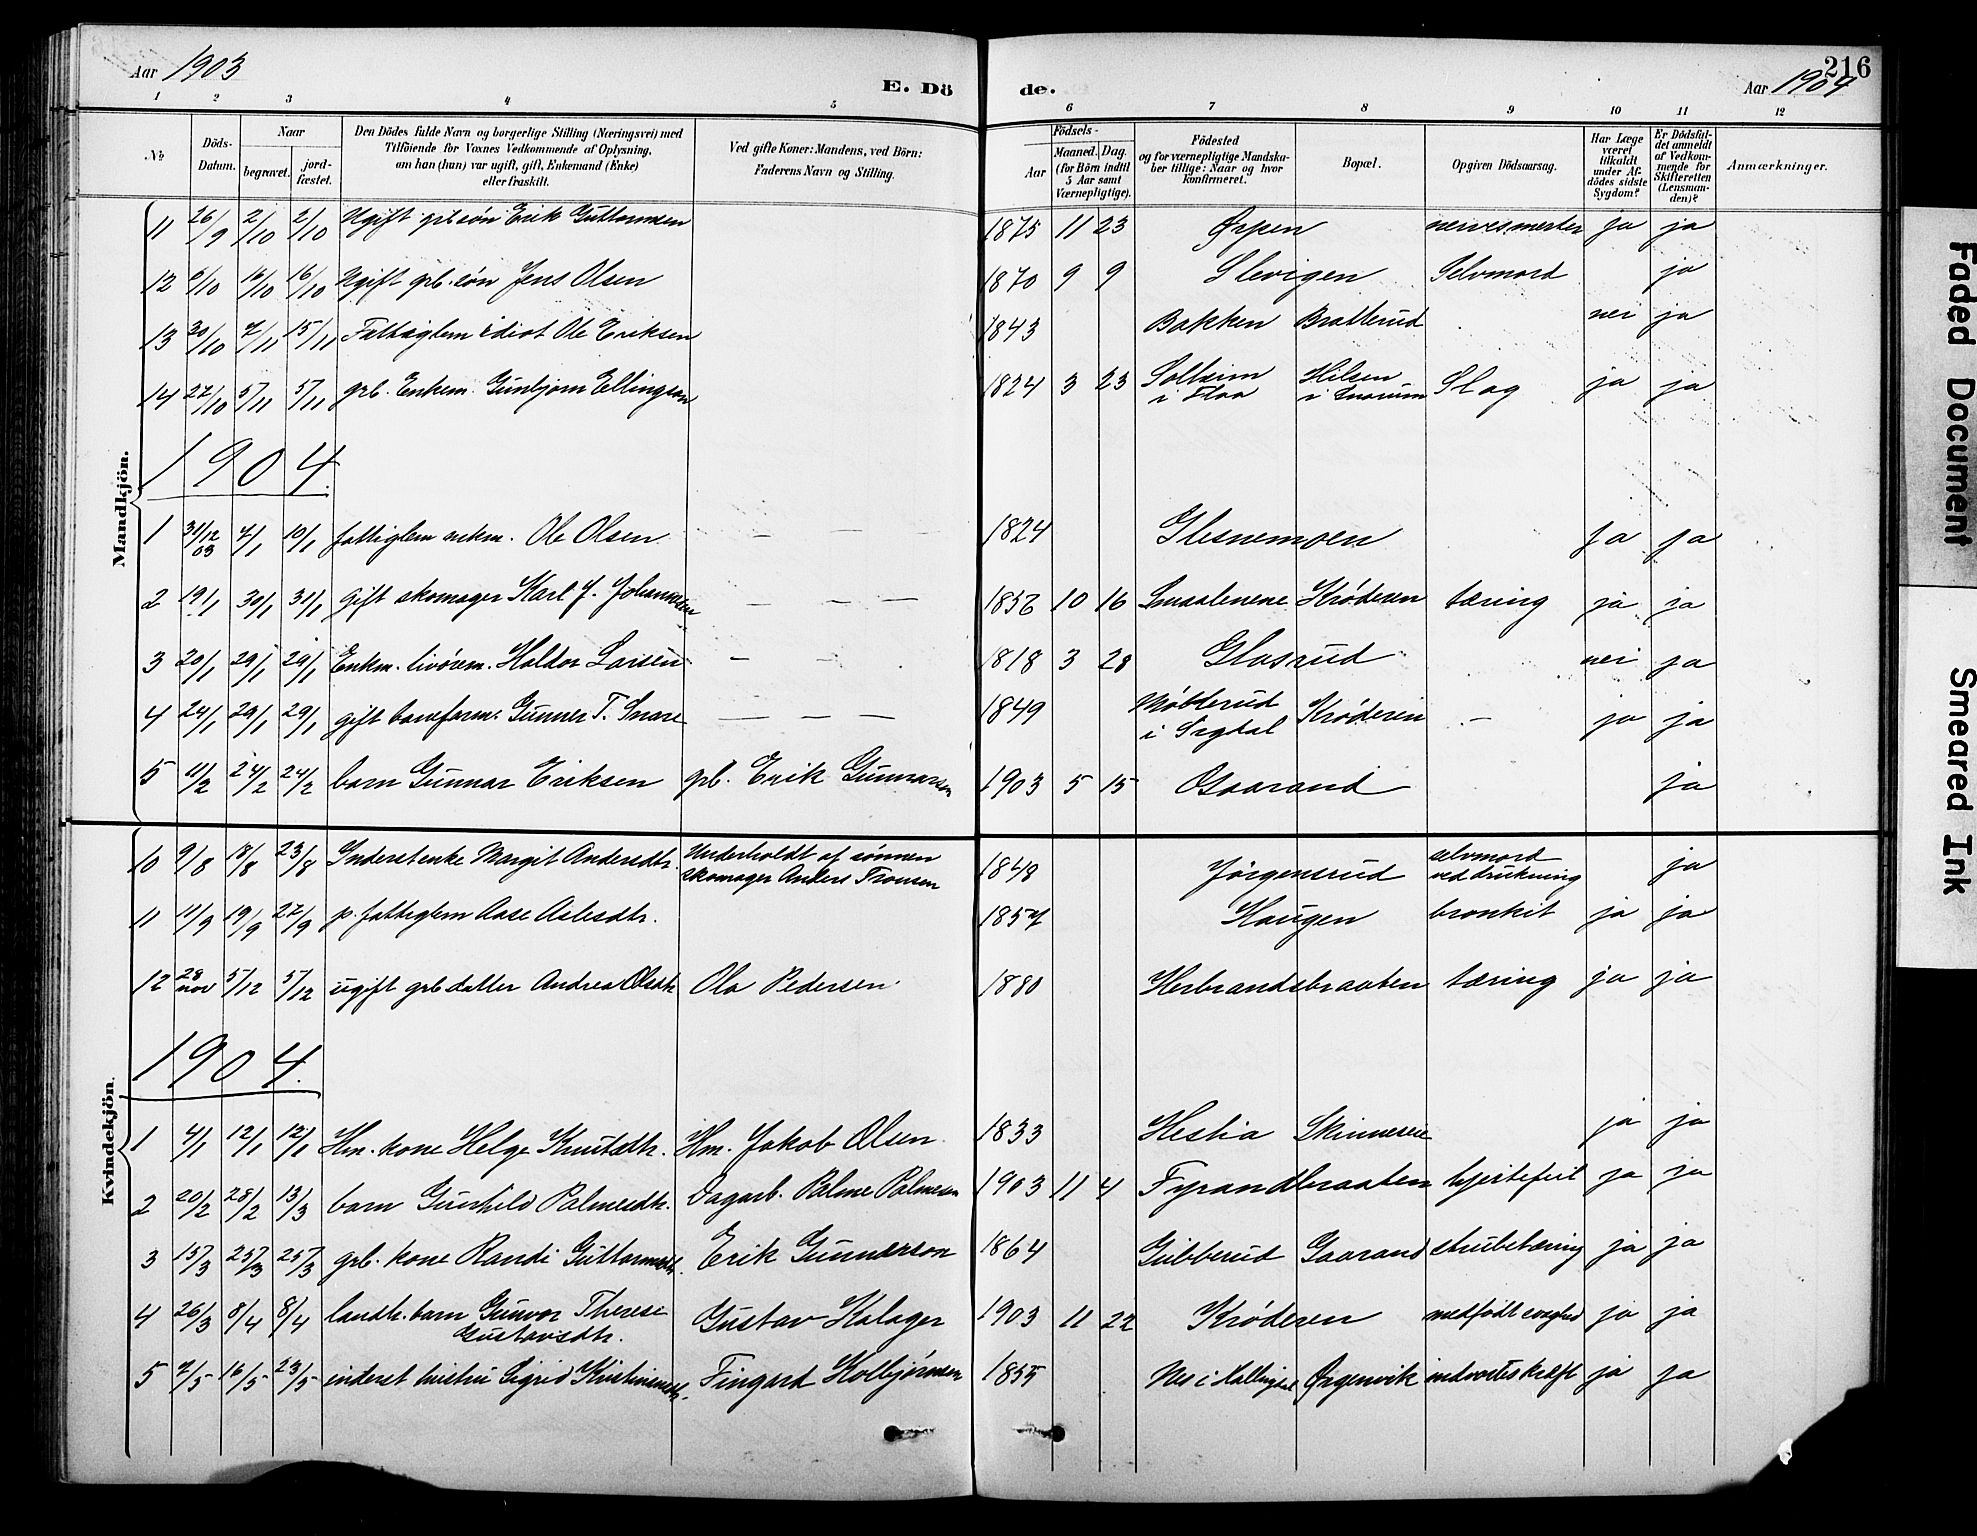 Aar 1903
E. Dö
de.
216
Aar 1904
1 2 3 4 5 6 7 8 9 10 11 12
No
Döds-Datum.
Naar
begravet.
jord-fæstet.
Den Dödes fulde Navn og borgerlige Stilling (Næringsvei) med
Tilföiende for Voxnes Vedkommende af Oplysning,
om han (hun) var ugift, gift, Enkemand (Enke)
eller fraskilt.
Ved gifte Koner: Mandens, ved Börn:
Faderens Navn og Stilling.
Födsels-
Aar
Maaned. Dag.
(for Börn indtil
5 Aar samt
Værnepligtige).
Födested
og for værnepligtige Mandska-
ber tillige: Naar og hvor
konfirmeret.
Bopæl.
Opgiven Dödsaarsag.
Har Læge
været
tilkaldt
under Af-
dödes sidste
Sygdom?
Er Dödsfal-
det anmeldt
af Vedkom-
mende for
Skifteretten
(Lensman-
den)?
Anmærkninger.
Mandkjön.
11 26/9 2/10 2/10 Ugift grb. sön Erik Guttormsen 1875 11 23 Ørpen ja ja
12 6/10 16/10 16/10 Ugift grb. sön Jens Olsen 1870 9 9 Slevigen Selvmord ja
13 20/10 7/11 15/11 Fattiglem idiot Ole Eriksen 1843 Bakken Bratterud nei ja
14 27/10 5/11 5/11 grb. Enkem. Gunbjørn Ellingsen 1824 3 23 Solheim i Flaa Hilsen i Snarum Slag ja ja
1904.
1 31/12 03 7/1 10/1 fattiglem enkm. Ole Olsen — — — 1824 Glesnemoen ja ja
2 19/1 30/1 31/1 gift skomager Karl J. Johannsen — — — 1856 10 16 Smaalenene Krøderen tæring ja ja
3 20/1 29/1 29/1 Enkm. livörem. Haldor Larsen — — 1818 3 28 Glasrud nei ja
4 24/1 29/1 29/1 gift baneform. Gunner T. Snare — — — 1849 i Sigdal Krøderen — ja ja
5 11/2 24/2 24/2 barn Gunnar Eriksen grb. Erik Gunnarsen 1903 5 15 Gaarand ja
Kvindekjön.
10 9/8 18/8 23/8 Inderstenke Margit Andersdtr. Underholdt af sønnen skomager Anders Tronsen 1848 Jørgensrud selvmord ved drukning ja
11 11/9 19/9 27/9 p. fattiglem Aase Aslesdtr. 1857 Haugen bronkit ja ja
12 28 nov 5/12 5/12 ugift grb datter Andrea Olsdtr Ola Pedersen 1880 Herbrandsbraaten tæring ja ja
1904.
1 4/1 12/1 12/1 Hm. kone Helge Knutsdtr. Hm. Jakob Olsen 1833 Hestia Skinneseie ja ja
2 20/2 28/2 13/3 barn Gunhild Palmesdtr. Dagarb. Palme Palmesen 1903 11 4 Fyrandbraaten hjertefeil ja ja
3 15/3 25/3 25/3 grb. kone Randi Guttormsdtr. Erik Gunnerson 1864 Gubberud Gaarand strubetæring ja ja
4 26/3 8/4 8/4 landh. barn Gunvor Therese Gustavsdtr. Gustav Kalager 1903 11 22 Krøderen medfødt svaghed ja ja
5 7/5 16/5 23/5 inderst hustru Sigrid Kristiansdtr. Fingard Kolbjørnsen 1855 Nes i Hallingdal Ørgenvik indvortes kræft ja ja
Faded Document
Smeared Ink